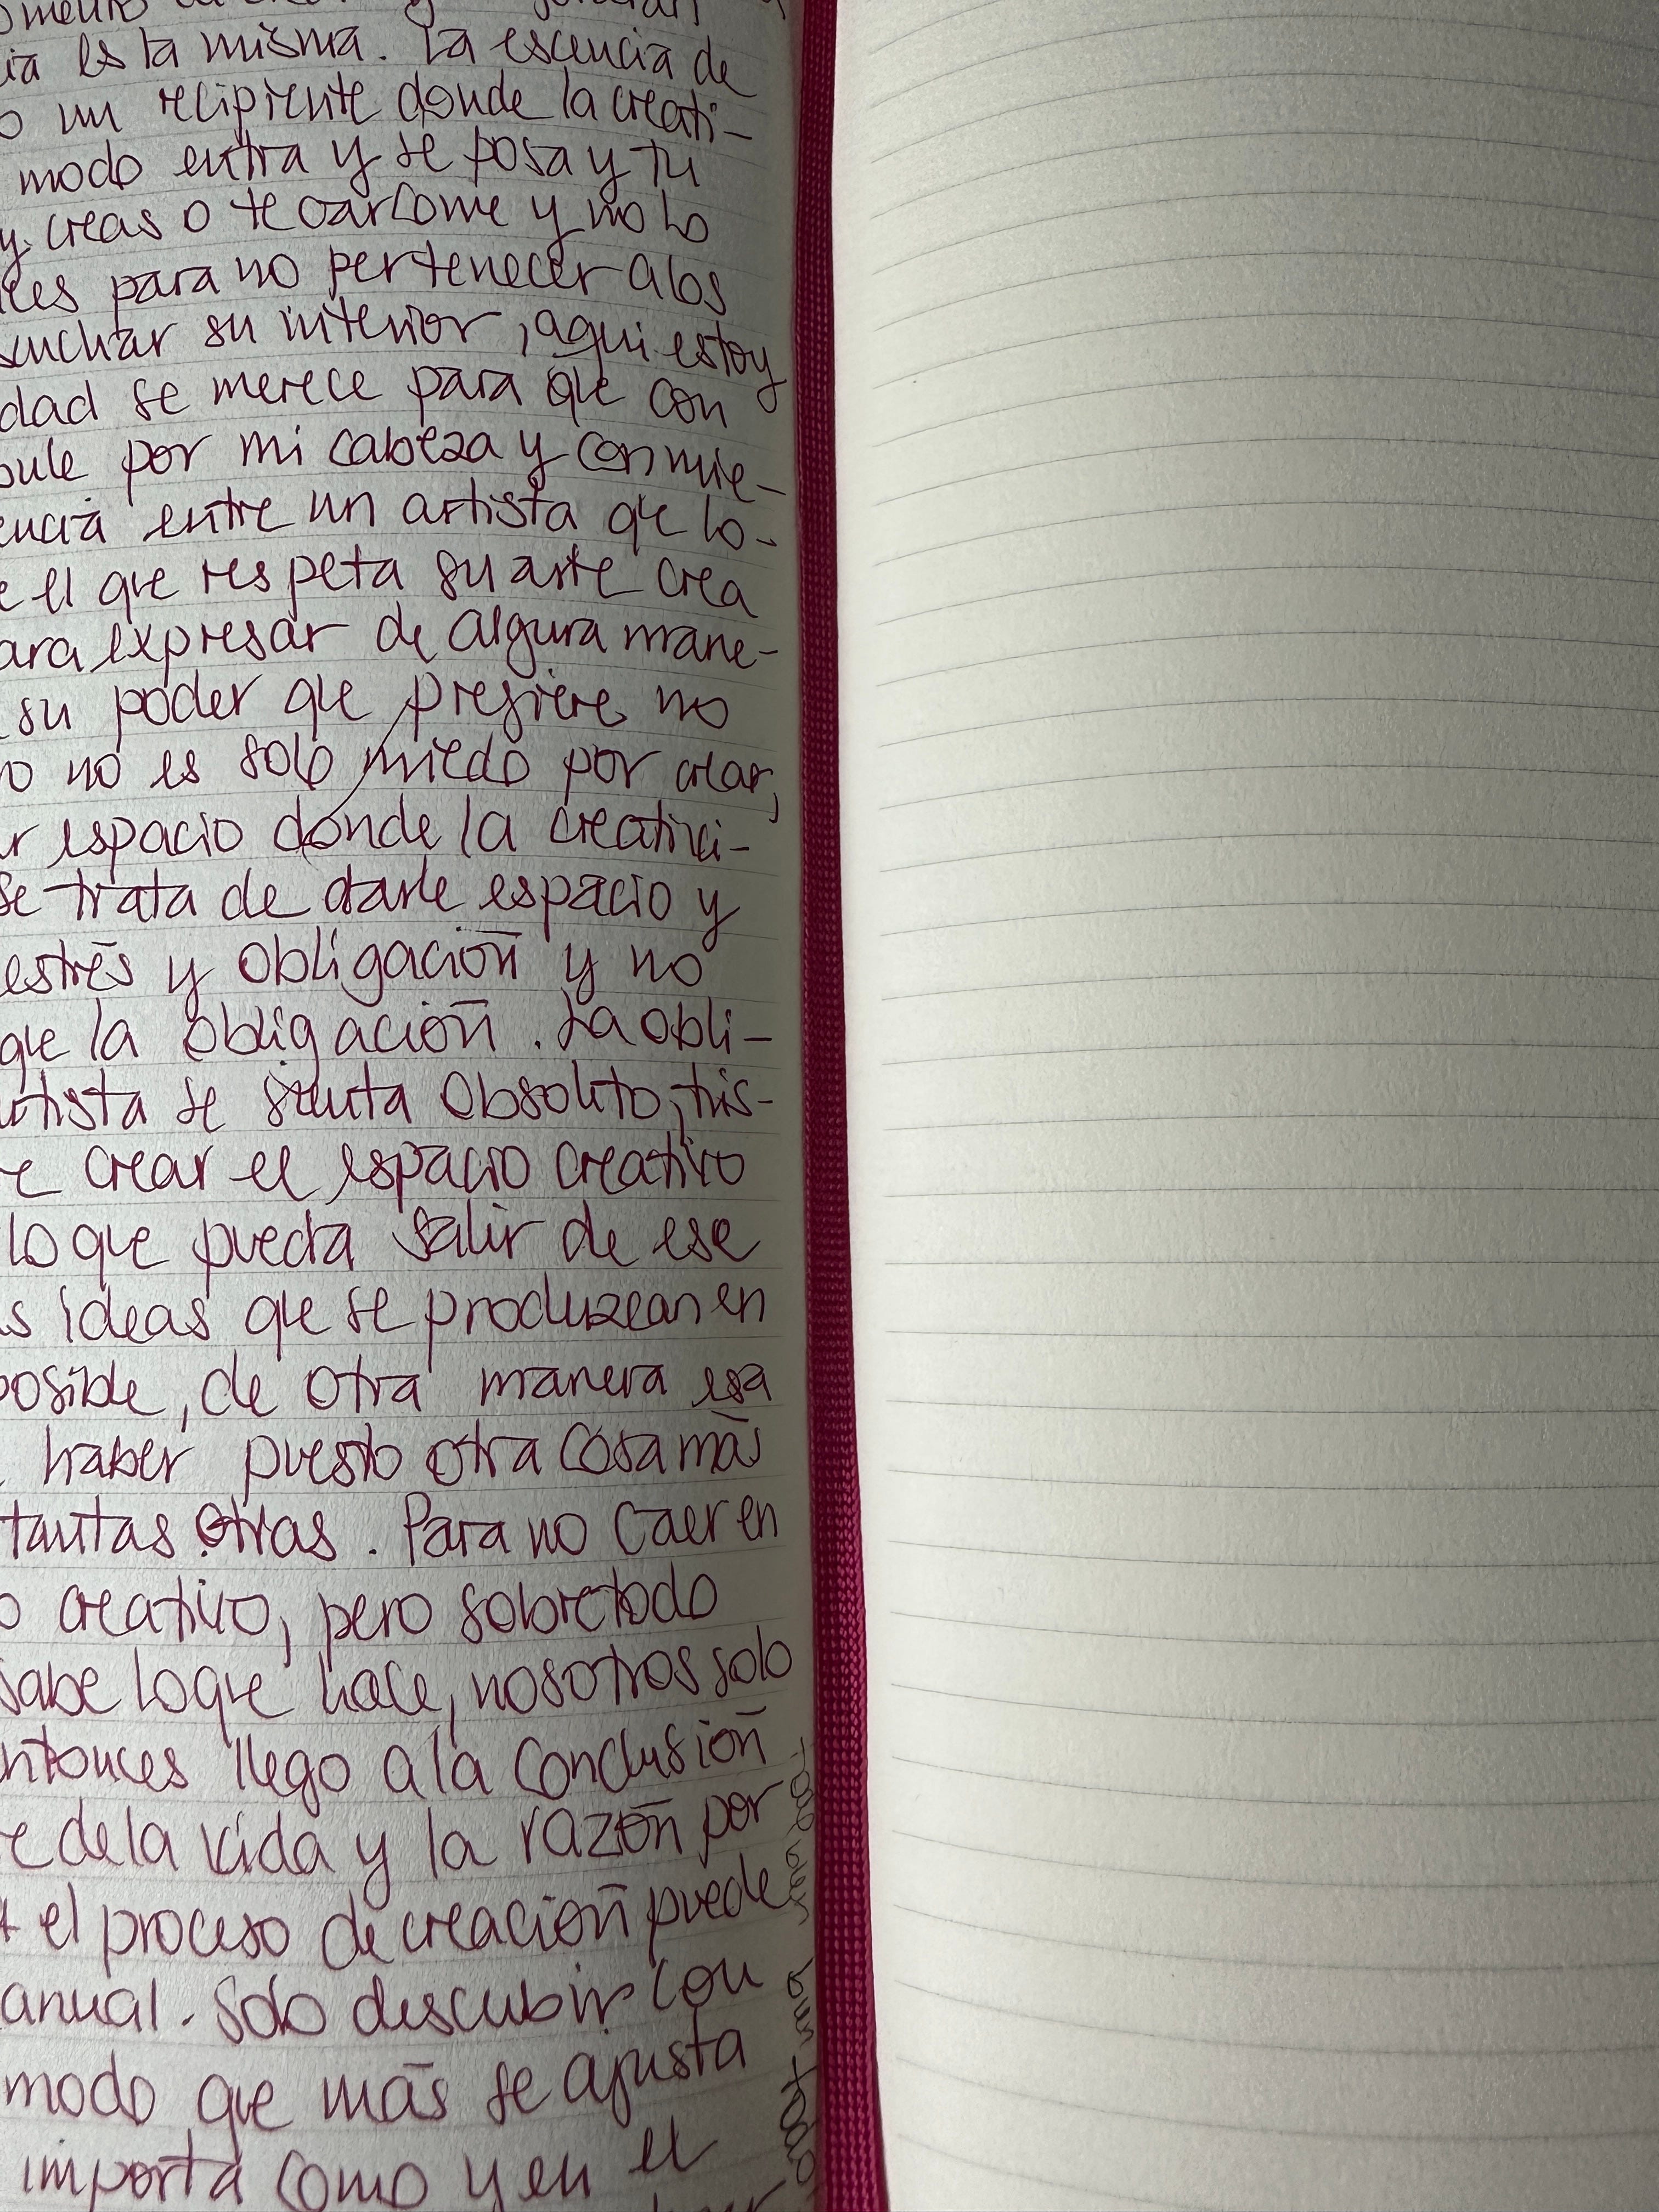 ia es la misma. La escencia de
o un recipiente donde la creati-
modo entra y se posa y tu
y creas o te carcome y no lo
para no pertenecer a los
su interior, aqui estoy
dad se merece para que con
por mi cabeza y con mie-
encia entre un artista que lo-
e el que respeta su arte crea
ara expresar de alguna mane-
su poder que prefiere no
o no es solo miedo por crear,
r espacio donde la creativi-
se trata de darle espacio y
estrés y obligación y no
que la obligación. La obli-
rtista se sienta obsoleto, tris-
e crear el espacio creativo
lo que pueda salir de ese
s ideas que se produzcan en
posible, de otra manera esa
haber puesto otra cosa más
tantas otras. Para no caer en
o creativo, pero sobretodo
sabe lo que hace, nosotros solo
ntonces llego a la conclusión
e de la vida y la razón por
el proceso de creación puede
anual. Solo descubrir con
modo que más se ajusta
importa como y en el